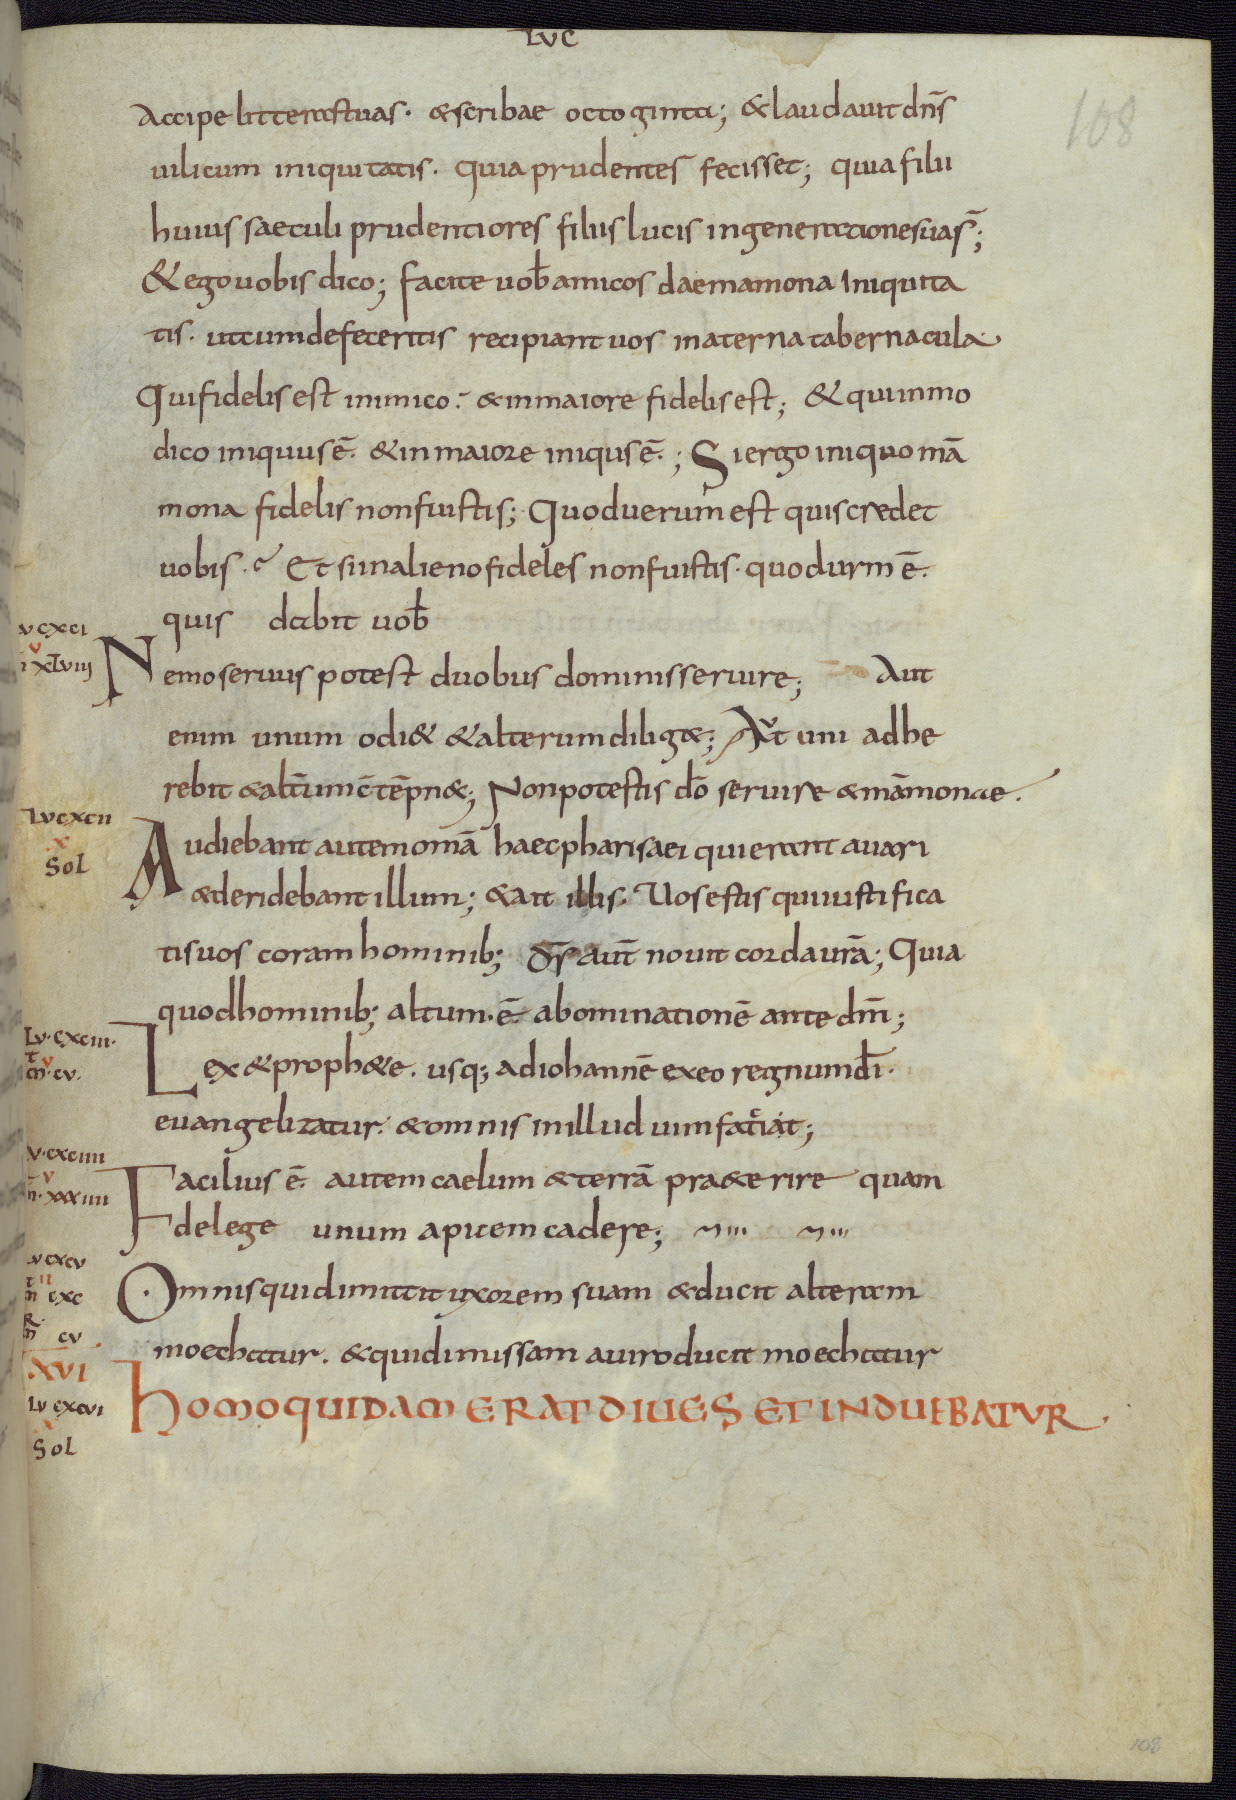 Luc
108
Accipe litterastuas· &scribae octoginta; &laudauit dn̄s
uilicum iniquitatis· Quia prudentes fecisset; quia filii
huius saeculi prudentiores filiis lucis ingenerationesuas̄;
&ego uobis dico; facite uob̄ amicos daemamona iniquita
tis· utcumdefeceritis recipiant uos inaterna tabernacula·
Qui fidelis est inimico· &inmaiore fidelis est; & qui inmo
dico iniquus ē· &in maiore iniqus ē·; Siergo iniquo mā
mona fidelis non fuistis; Quod uerum est quis credet
uobis· Et si inalieno fideles non fuistis· quod urm ē·
quis dabit uob̄
Lu cxci
xlviii
Nemo seruus potest duobus dominis seruire; Aut
enim unum odi& &alterum dilig&; Aut uni adhe
rebit &alt̄um c̄tēpn&; Non potestis dō seruire &māmonae·
Lu cxcii
x
Sol
Audiebant autem omā haec pharisaei qui erant auari
&deridebant illum; &ait illis· Uos estis qui iustifica
tis uos coram hominib; ds̄ aut̄ nouit corda urā; Quia
quod hominib; altum· ē· abominationē ante dm̄;
Lu·cxciii·
v
m·cv·
Lex &proph&e· usq; ad iohannē exeo regnum dī·
euangelizatur· &omnis inillud uim faciat;
Lu·cxciiii
v
m·xxxiiii
Facilius ē· autem caelum &terrā pra&erire quam
delege unum apicem cadere;
Lu cxcv
ii
m cxc
m cv
Omnis qui dimittit uxorem suam &ducit alteram
moechatur· &qui dimissam auiro ducit moechatur
XVI
Lu cxcvi
x
Sol
HOMO QUIDAM ERAT DIUES ET INDUEBATUR·
108